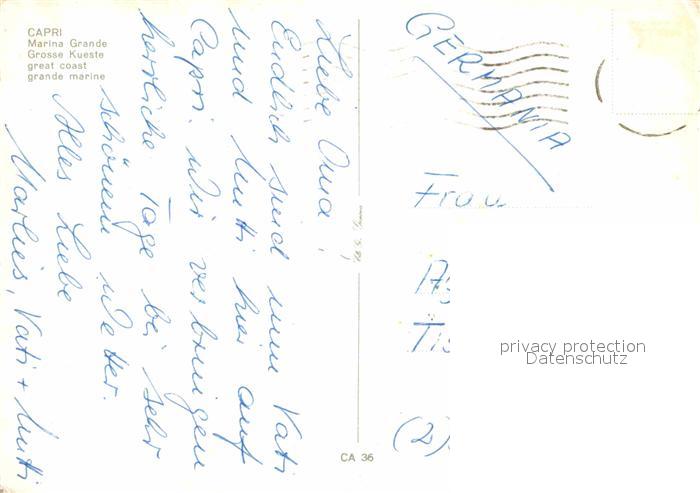 CAPRI
Marina Grande
Grosse Kueste
great coast
grande marine
Liebe Oma!
Endlich sind nun Vati
und Mutti hier auf
Capri. Wir verbringen
herrliche Tage bei sehr
schönem Wetter.
Alles Liebe
Marlies, Vati + Mutti
CA 36
GERMANIA
Frau
privacy protection
Datenschutz
(2)